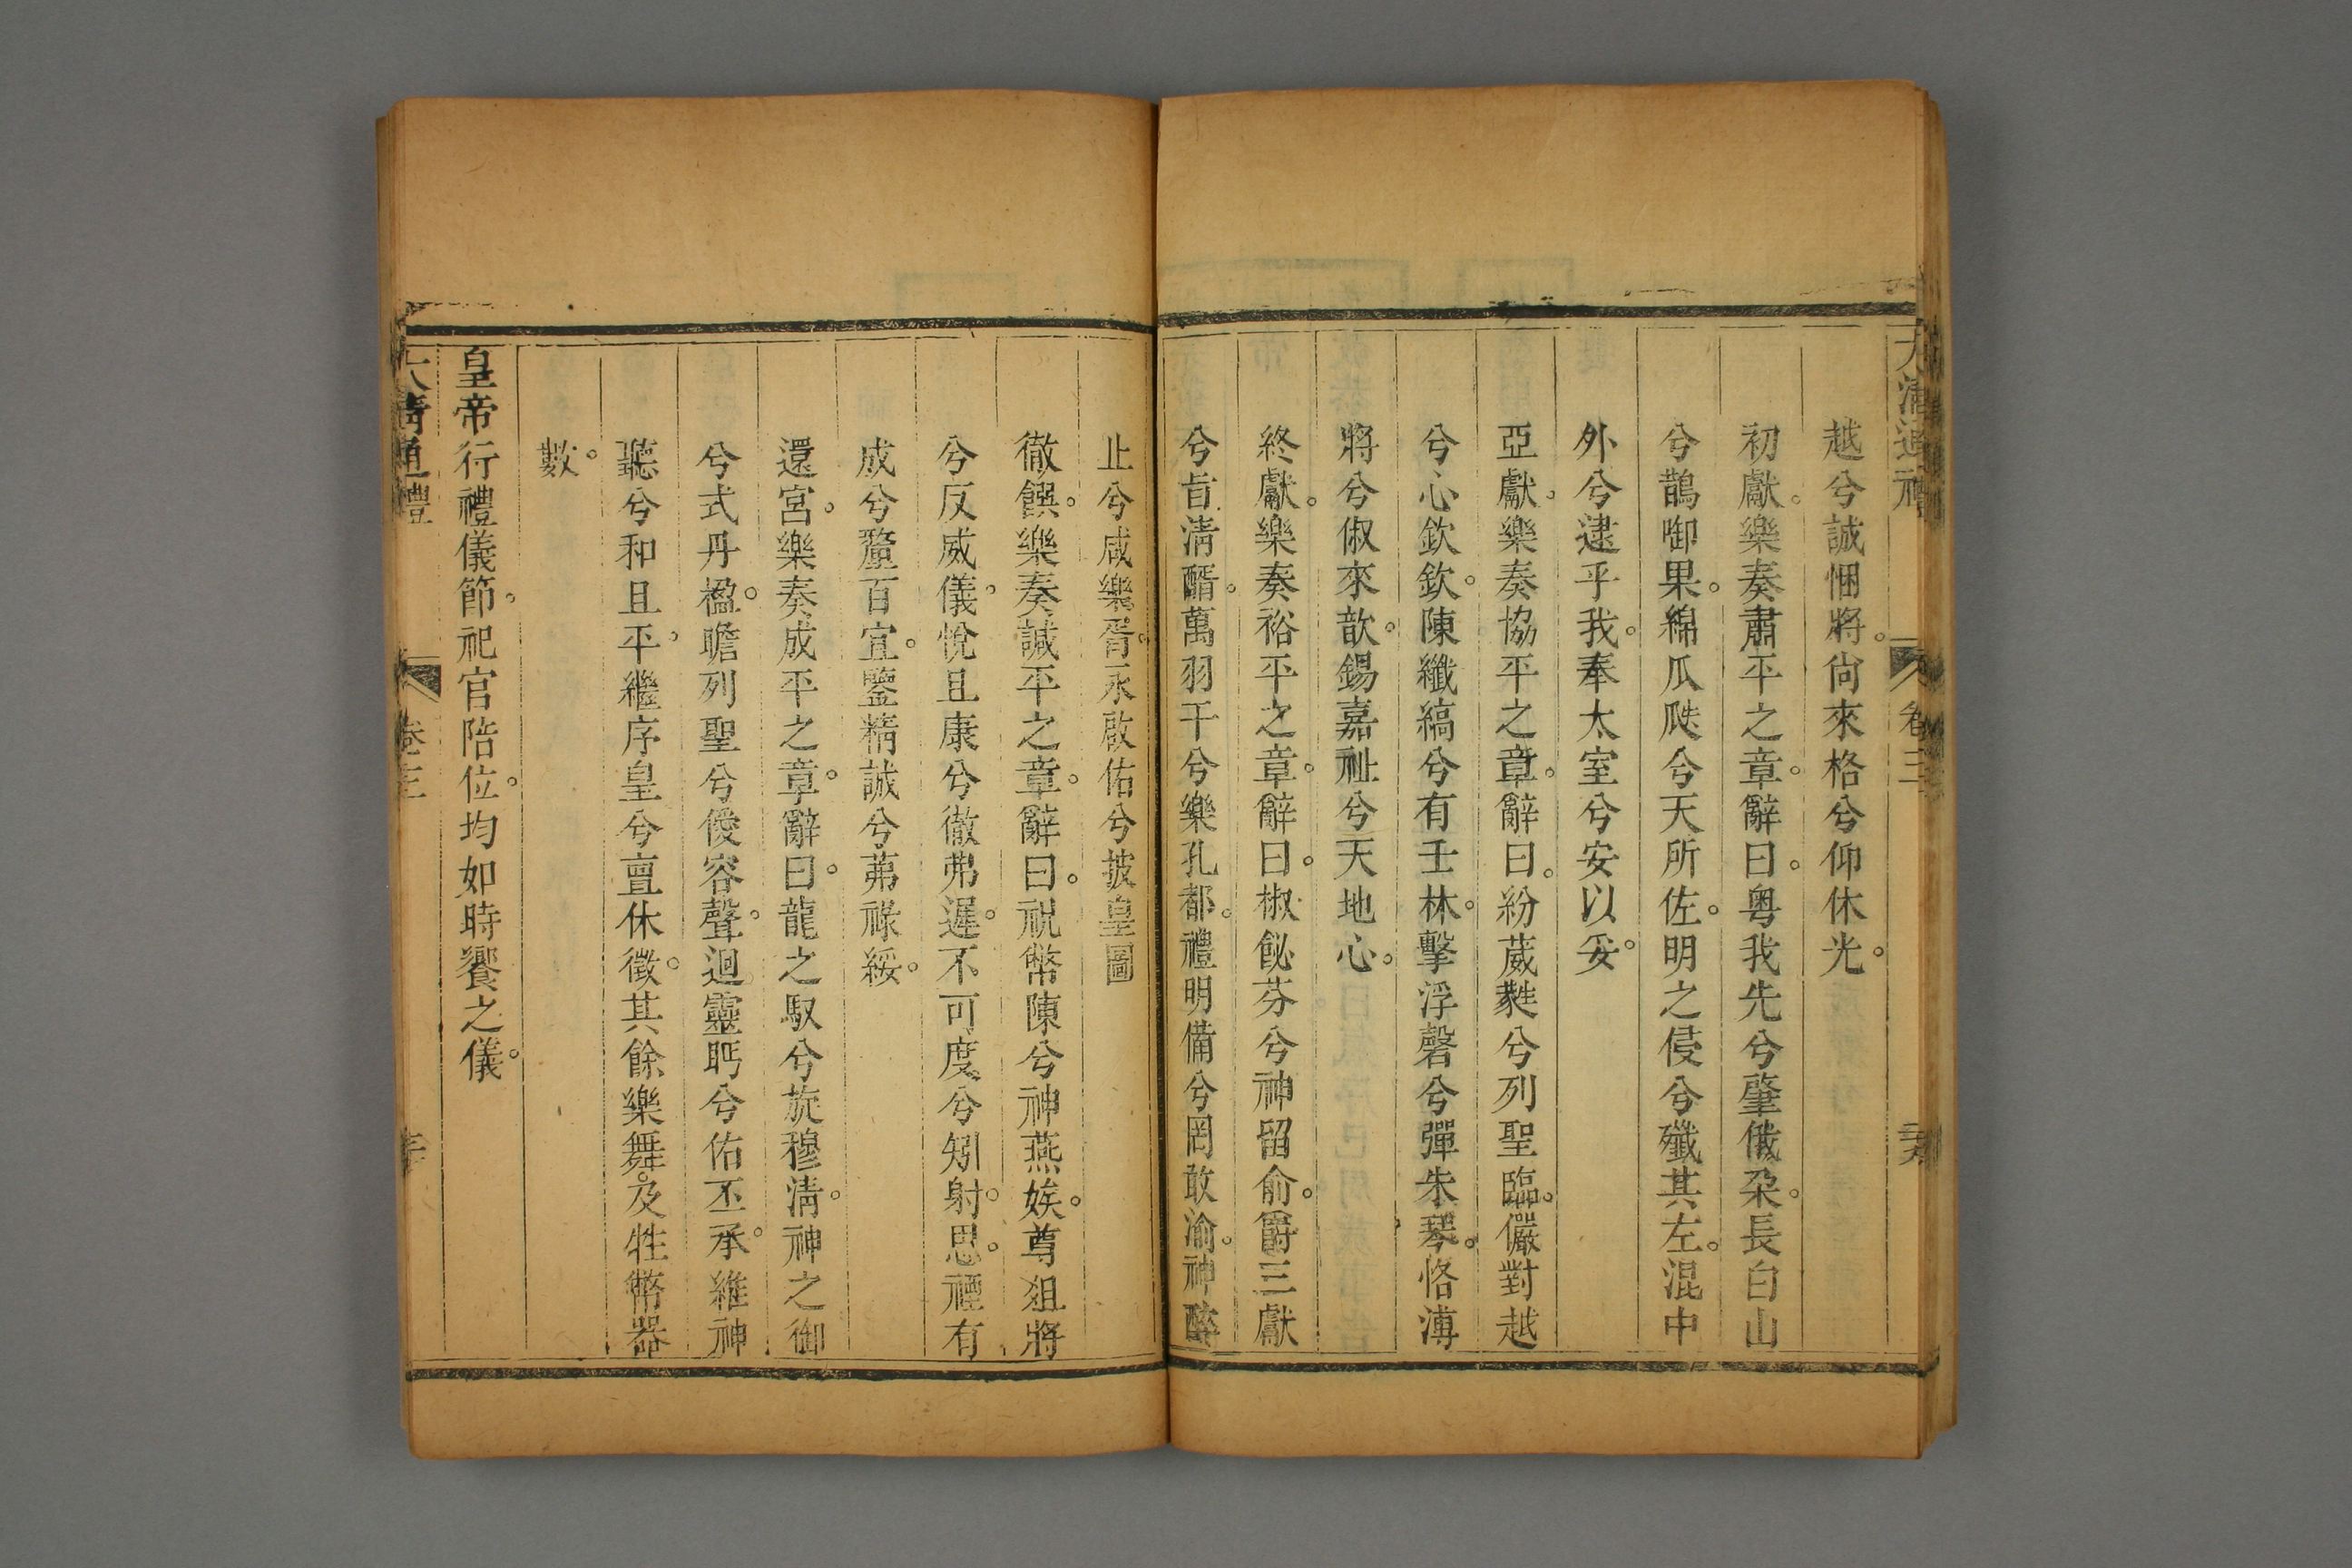 大清通禮 卷三
越兮誠悃將。尙來格兮仰休光。
初獻。樂奏肅平之章。辭曰。粤我先兮肇俄朶。長白山
兮鵲啣果。綿瓜瓞兮天所佐。明之侵兮殱其左。混中
外兮逮乎我。奉太室兮安以妥。
亞獻。樂奏協平之章。辭曰。紛葳蕤兮列聖臨。儼對越
兮心欽欽。陳纖縞兮有壬林。擊浮磬兮彈朱琴。恪溥
將兮俶來歆。錫嘉祉兮天地心。
終獻。樂奏裕平之章。辭曰。椒飶芬兮神留俞。爵三獻
兮旨淸醑。萬羽干兮樂孔都。禮明備兮罔敢渝。神醉
止兮咸樂胥。永啟佑兮披皇圖
徹饌。樂奏諴平之章。辭曰。祝幣陳兮神燕娭。尊俎將
兮反威儀。悅且康兮徹弗遲。不可度兮矧射思。禋有
成兮釐百宜。鑒精誠兮茀祿綏。
還宮。樂奏成平之章。辭曰。龍之馭兮旋穆淸。神之御
兮式丹楹。瞻列聖兮僾容聲。迴靈眄兮佑丕承。維神
聽兮和且平。繼序皇兮亶休徵。其餘樂舞。及牲幣器
數。
皇帝行禮儀節。祀官陪位。均如時饗之儀。
大淸通禮 卷三